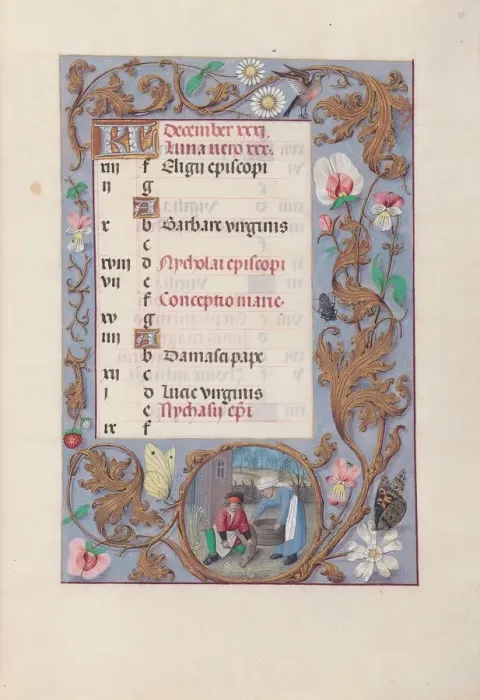 KL December xxxi.
Luna vero xxx.
xiii f Eligii episcopi
ii g
A
x b Barbare virginis
c
xviii d Nycholai episcopi
vii e
f Conceptio marie.
xv g
iiii A
b Damasci pape
xii c
i d Lucie virginis
e Nychasii ep̄i
ix f